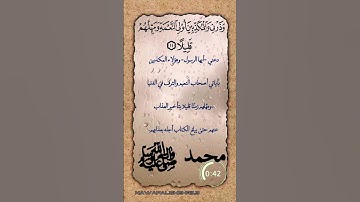 وَذَرْنِي وَالْمُكَذِّبِينَ أُولِي النَّعْمَةِ وَمَهِّلْهُمْ
قَلِيلًا ﴿١١﴾
دعني -أيها الرسول- وهؤلاء المكذبين
بآياتي أصحاب النعيم والترف في الدنيا
ومهِّلهم زمنًا قليلا بتأخير العذاب
عنهم حتى يبلغ الكتاب أجله بعذابهم
محمد
صلى الله عليه وسلم
0:42